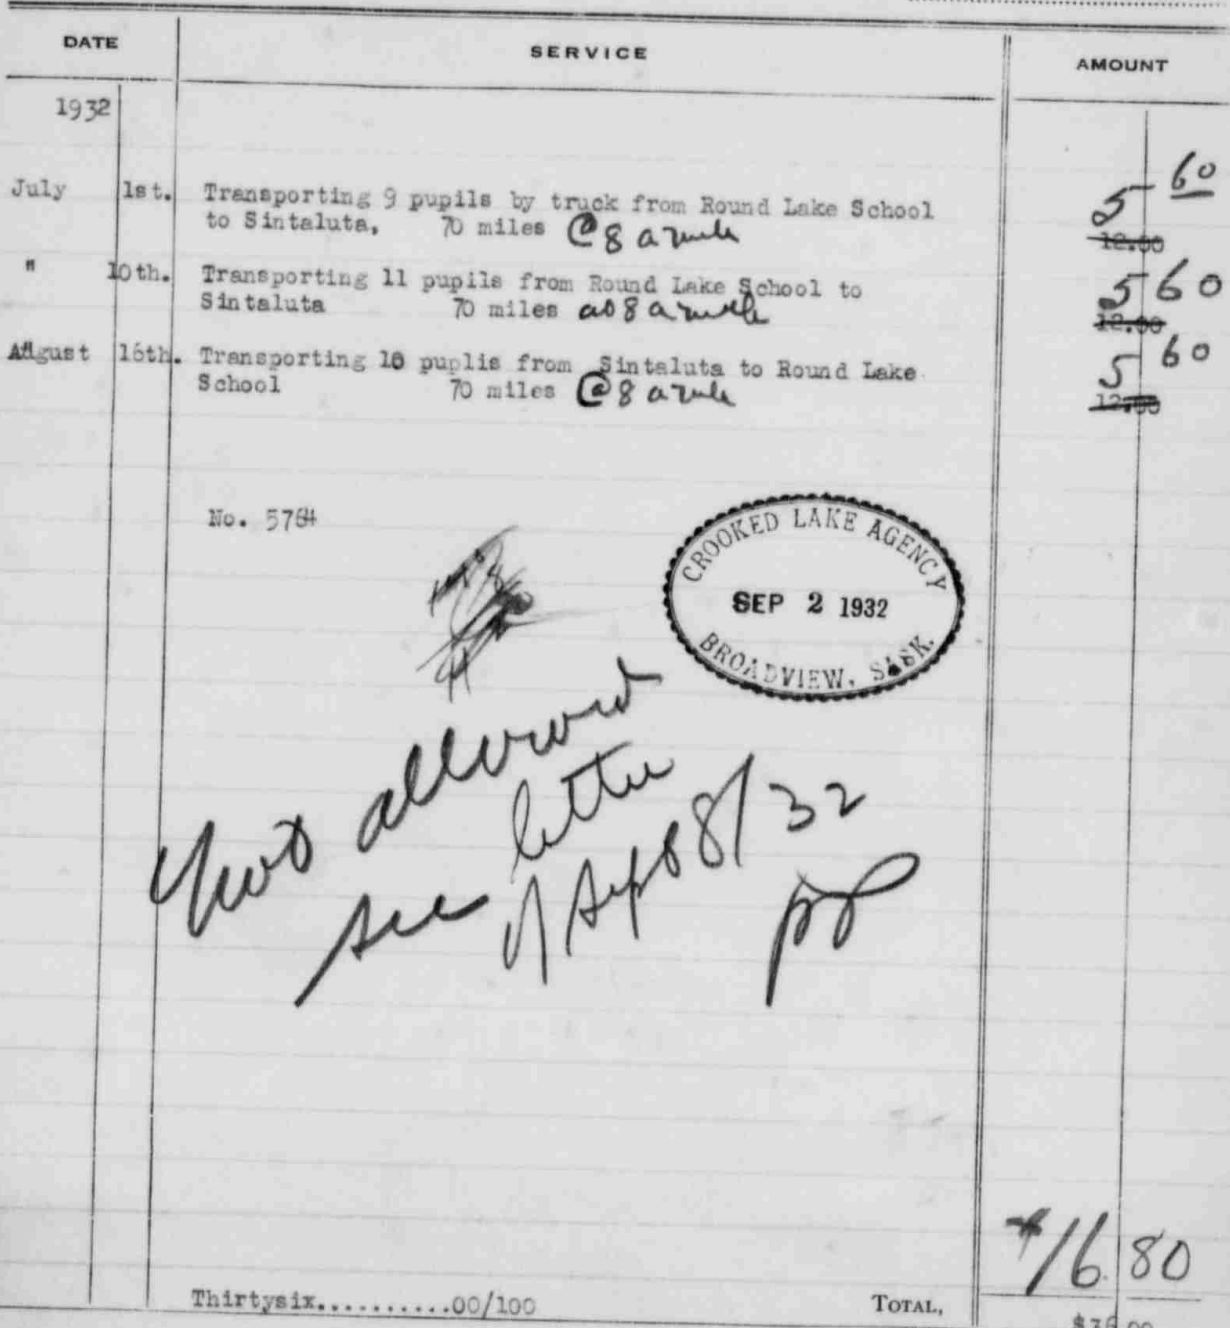 DATE SERVICE AMOUNT
1932
60
July 1st. Transporting 9 pupils by truck from Round Lake School 5
to Sintaluta, 70 miles @ 8 a mile 12.00
" 10th. Transporting 11 pupils from Round Lake School to 5 60
Sintaluta 70 miles at 8 a mile 12.00
August 16th. Transporting 10 puplis from Sintaluta to Round Lake 5 60
School 70 miles @ 8 a mile 12.00
No. 5764
CROOKED LAKE AGENCY
SEP 2 1932
BROADVIEW, SASK.
Not allowed
see letter
of Sept 8/32
$16.80
Thirtysix..........00/100 TOTAL,
$36.00